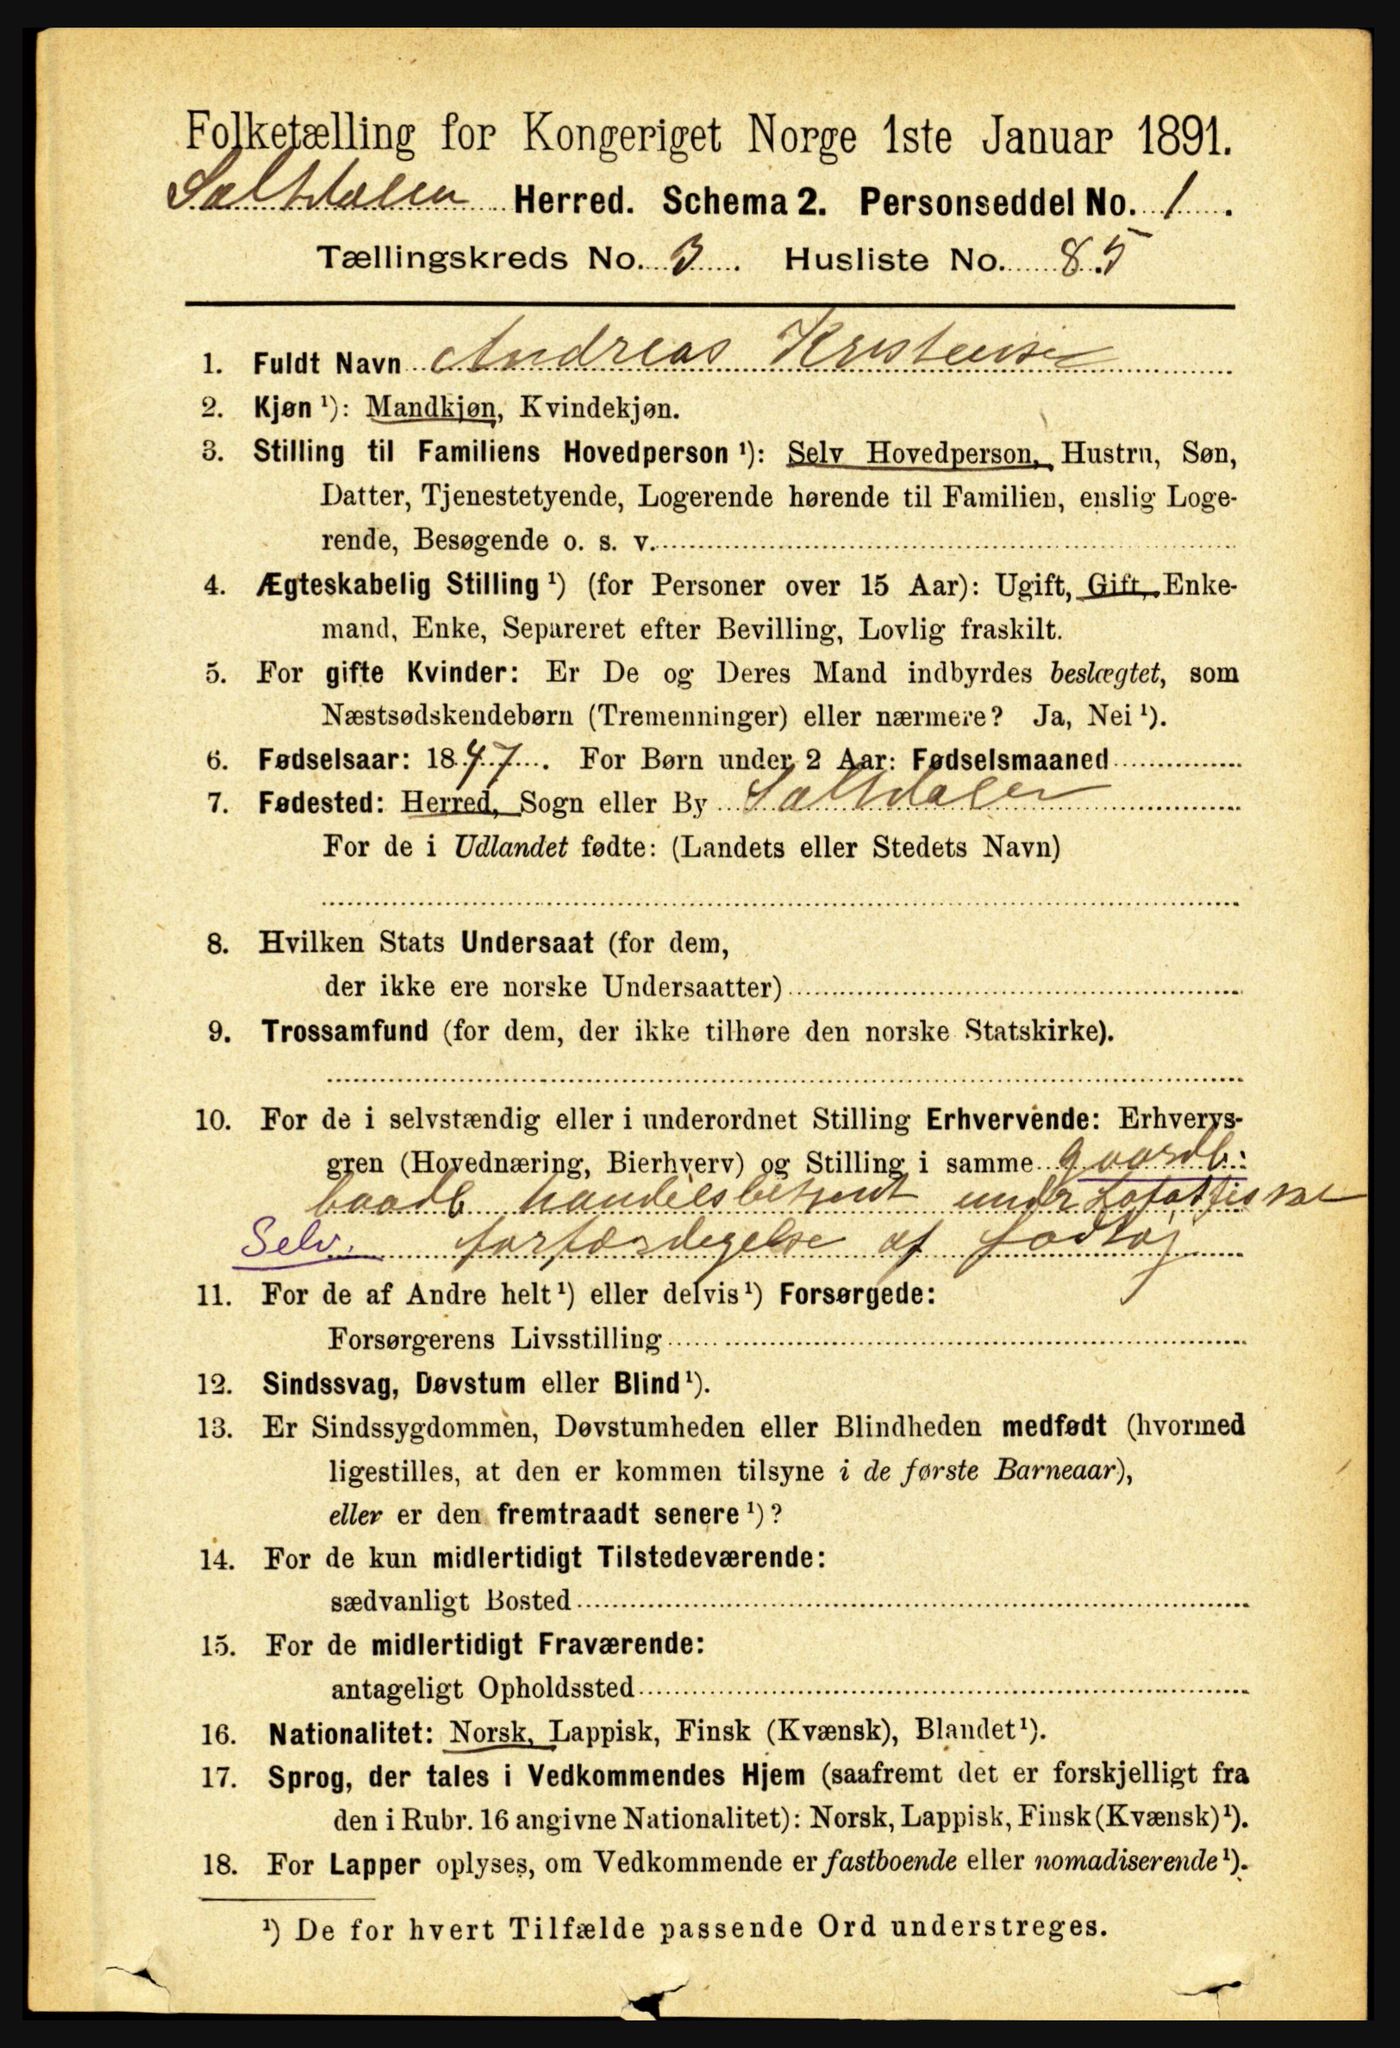 Folketælling for Kongeriget Norge 1ste Januar 1891.
Saltdalen Herred. Schema 2. Personseddel No. 1.
Tællingskreds No. 3. Husliste No. 85
1. Fuldt Navn Andreas Kristensen
2. Kjøn ¹): Mandkjøn, Kvindekjøn.
3. Stilling til Familiens Hovedperson ¹): Selv Hovedperson, Hustru, Søn,
Datter, Tjenestetyende, Logerende hørende til Familien, enslig Loge-
rende, Besøgende o. s. v.
4. Ægteskabelig Stilling ¹) (for Personer over 15 Aar): Ugift, Gift, Enke-
mand, Enke, Separeret efter Bevilling, Lovlig fraskilt.
5. For gifte Kvinder: Er De og Deres Mand indbyrdes beslægtet, som
Næstsødskendebørn (Tremenninger) eller nærmere? Ja, Nei ¹).
6. Fødselsaar: 1847. For Børn under 2 Aar: Fødselsmaaned
7. Fødested: Herred, Sogn eller By Saltdalen
For de i Udlandet fødte: (Landets eller Stedets Navn)
8. Hvilken Stats Undersaat (for dem,
der ikke ere norske Undersaatter)
9. Trossamfund (for dem, der ikke tilhøre den norske Statskirke).
10. For de i selvstændig eller i underordnet Stilling Erhvervende: Erhvervs-
gren (Hovednæring, Bierhverv) og Stilling i samme gaardb:
handelsbetjent under Lofotfisket
Selv. forfærdigelse af fodtøj
11. For de af Andre helt ¹) eller delvis ¹) Forsørgede:
Forsørgerens Livsstilling
12. Sindssvag, Døvstum eller Blind ¹).
13. Er Sindssygdommen, Døvstumheden eller Blindheden medfødt (hvormed
ligestilles, at den er kommen tilsyne i de første Barneaar),
eller er den fremtraadt senere ¹)?
14. For de kun midlertidigt Tilstedeværende:
sædvanligt Bosted
15. For de midlertidigt Fraværende:
antageligt Opholdssted
16. Nationalitet: Norsk, Lappisk, Finsk (Kvænsk), Blandet ¹).
17. Sprog, der tales i Vedkommendes Hjem (saafremt det er forskjelligt fra
den i Rubr. 16 angivne Nationalitet): Norsk, Lappisk, Finsk (Kvænsk) ¹).
18. For Lapper oplyses, om Vedkommende er fastboende eller nomadiserende ¹).
¹) De for hvert Tilfælde passende Ord understreges.